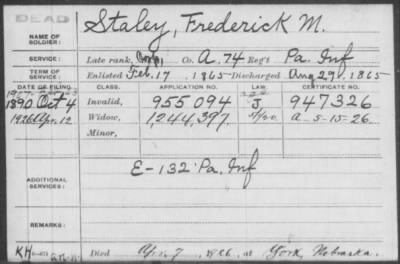 DEAD
NAME OF SOLDIER: Staley, Frederick M.
SERVICE: Late rank, Corp, Co. A. 74 Reg't Pa. Inf
TERM OF SERVICE: Enlisted Feb. 17, 1865 Discharged Aug 29, 1865
DATE OF FILING. CLASS. APPLICATION NO. LAW. CERTIFICATE NO.
1890 Oct 4 Invalid, 955094 J. 947326
1926 Apr. 12 Widow, 1,244,397 A-5-15-26.
Minor,
ADDITIONAL SERVICES: E-132 Pa. Inf
REMARKS:
KH
Died Apr. 7, 1926, at York, Nebraska.